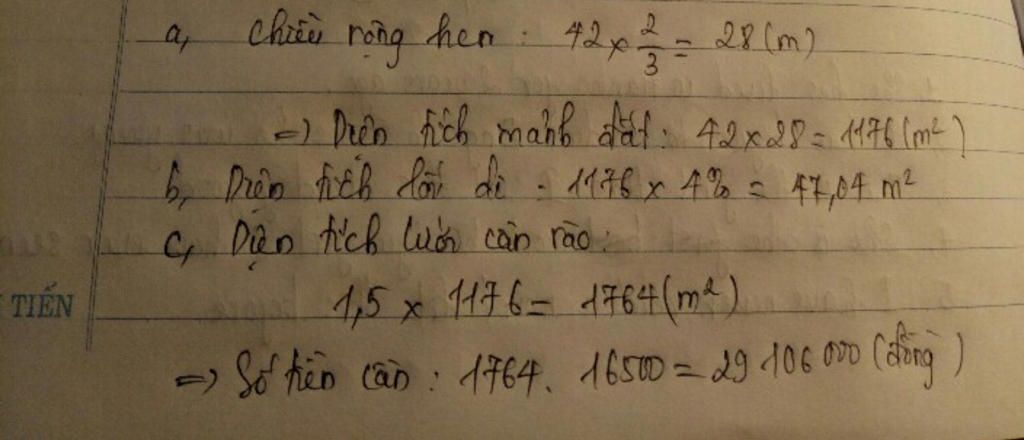 a, chiều rộng hcn : 42 × 2/3 = 28 (m)
=> Diện tích mảnh đất : 42 × 28 = 1176 (m²)
b, Diện tích lối đi : 1176 × 4% = 47,04 m²
c, Diện tích lưới cần rào :
1,5 × 1176 = 1764 (m²)
TIẾN
=> Số tiền cần : 1764 . 16500 = 29 106 000 (đồng)